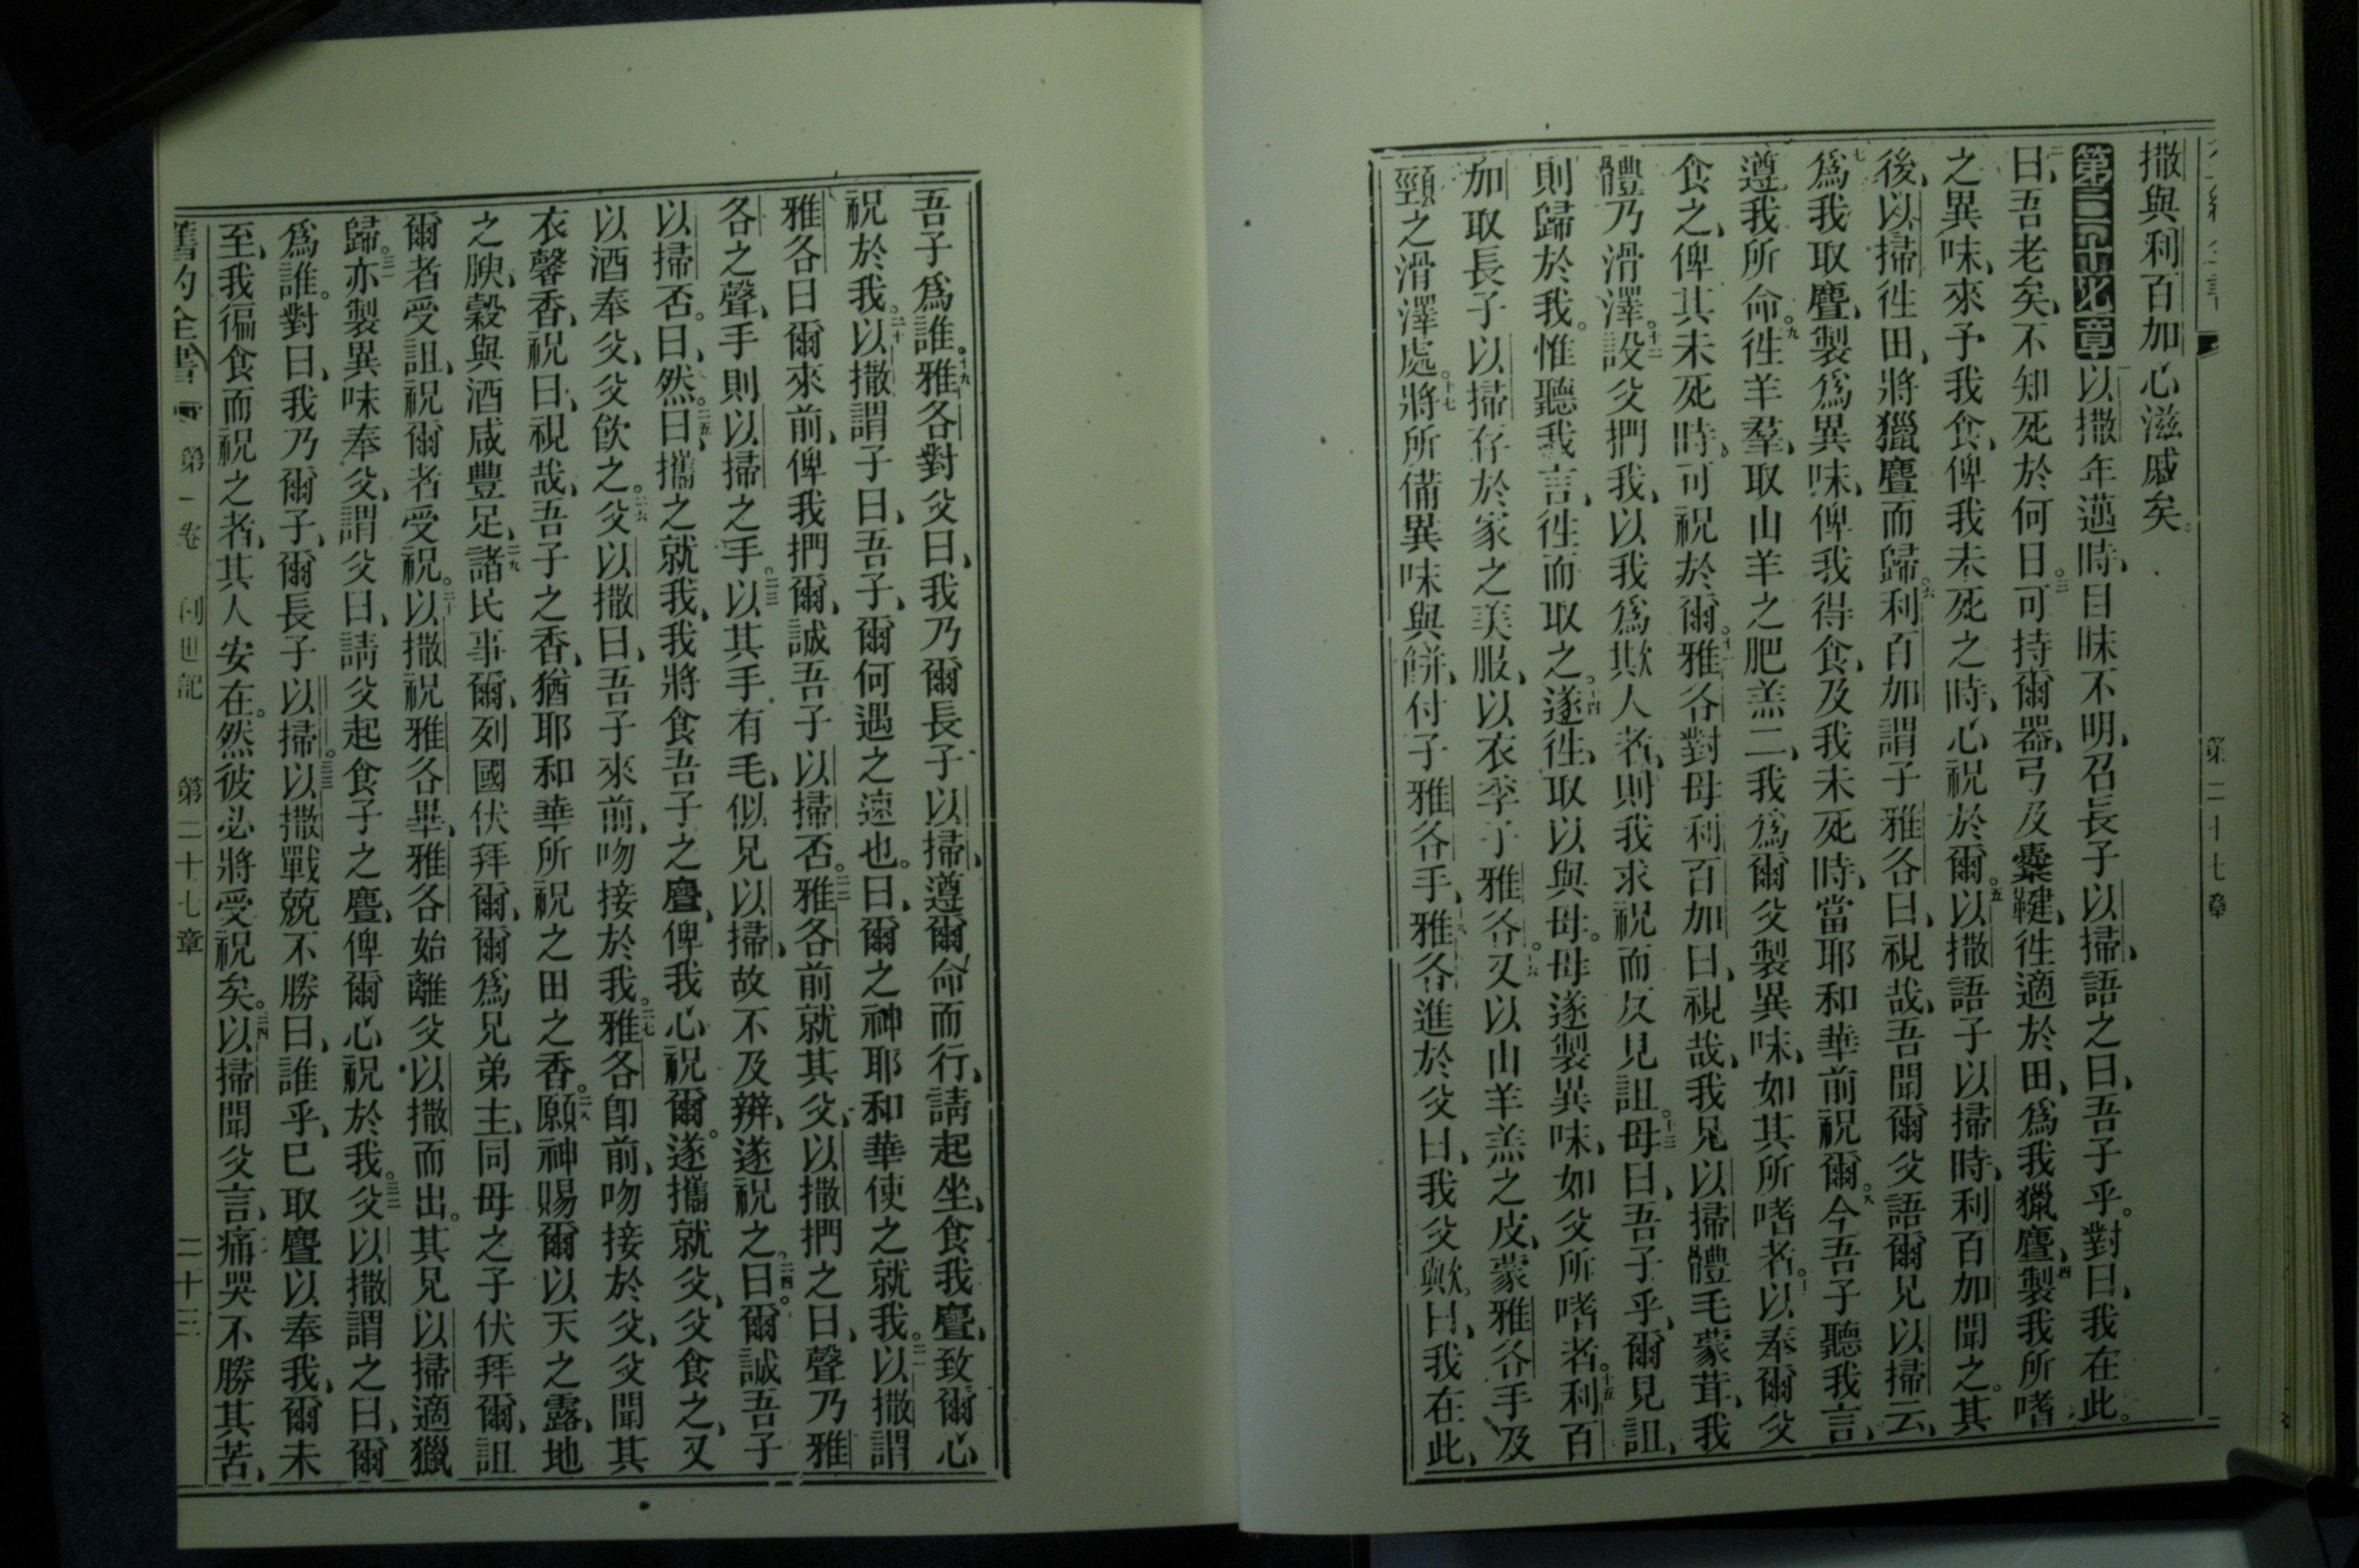 第二十七章
撒與利百加心滋戚矣。
第二十七章 一以撒年邁時、目昧不明、召長子以掃、語之曰、吾子乎。對曰、我在此。
二曰、吾老矣、不知死於何日。三可持爾器、弓及櫜鞬、徃適於田、爲我獵麞、四製我所嗜
之異味、來予我食、俾我未死之時、心祝於爾。五以撒語子以掃時、利百加聞之。其
後、以掃徃田、將獵麞而歸。六利百加謂子雅各曰、視哉、吾聞爾父語爾兄以掃云、
七爲我取麞、製爲異味、俾我得食、及我未死時、當耶和華前祝爾。八今吾子聽我言、
遵我所命。九徃羊羣、取山羊之肥羔二、我爲爾父製異味、如其所嗜者。十以奉爾父
食之、俾其未死時、可祝於爾。十一雅各對母利百加曰、視哉、我兄以掃體毛蒙茸、我
體乃滑澤。十二設父捫我、以我爲欺人者、則我求祝而反見詛。十三母曰、吾子乎、爾見詛、
則歸於我。惟聽我言、徃而取之。十四遂徃、取以與母。母遂製異味、如父所嗜者。十五利百
加取長子以掃存於家之美服、以衣季子雅各。十六又以山羊羔之皮、蒙雅各手及
頸之滑澤處。十七將所備異味與餅、付子雅各手、十八雅各進於父曰、我父歟。曰、我在此、
吾子爲誰。十九雅各對父曰、我乃爾長子以掃、遵爾命而行、請起坐、食我麞、致爾心
祝於我。二十以撒謂子曰、吾子、爾何遇之速也。曰、爾之神耶和華使之就我。二一以撒謂
雅各曰爾來前、俾我捫爾、誠吾子以掃否。二二雅各前就其父、以撒捫之曰、聲乃雅
各之聲、手則以掃之手。二三以其手有毛、似兄以掃、故不及辨、遂祝之。二四曰、爾誠吾子
以掃否。曰、然。二五曰、攜之就我、我將食吾子之麞、俾我心祝爾。遂攜就父、父食之、又
以酒奉父、父飮之。二六父以撒曰、吾子來前、吻接於我。二七雅各卽前、吻接於父、父聞其
衣馨香、祝曰、視哉、吾子之香、猶耶和華所祝之田之香。二八願神賜爾以天之露、地
之腴、穀與酒咸豐足、二九諸民事爾、列國伏拜爾、爾爲兄弟主、同母之子伏拜爾、詛
爾者受詛、祝爾者受祝。三十以撒祝雅各畢、雅各始離父以撒而出。其兄以掃適獵
歸。三一亦製異味奉父、謂父曰、請父起食子之麞、俾爾心祝於我。三二父以撒謂之曰、爾
爲誰。對曰、我乃爾子、爾長子以掃。三三以撒戰兢不勝曰、誰乎、已取麞以奉我、爾未
至、我徧食而祝之者、其人安在。然彼必將受祝矣。三四以掃聞父言、痛哭不勝其苦、
舊約全書 第一卷 創世記 第二十七章 二十三